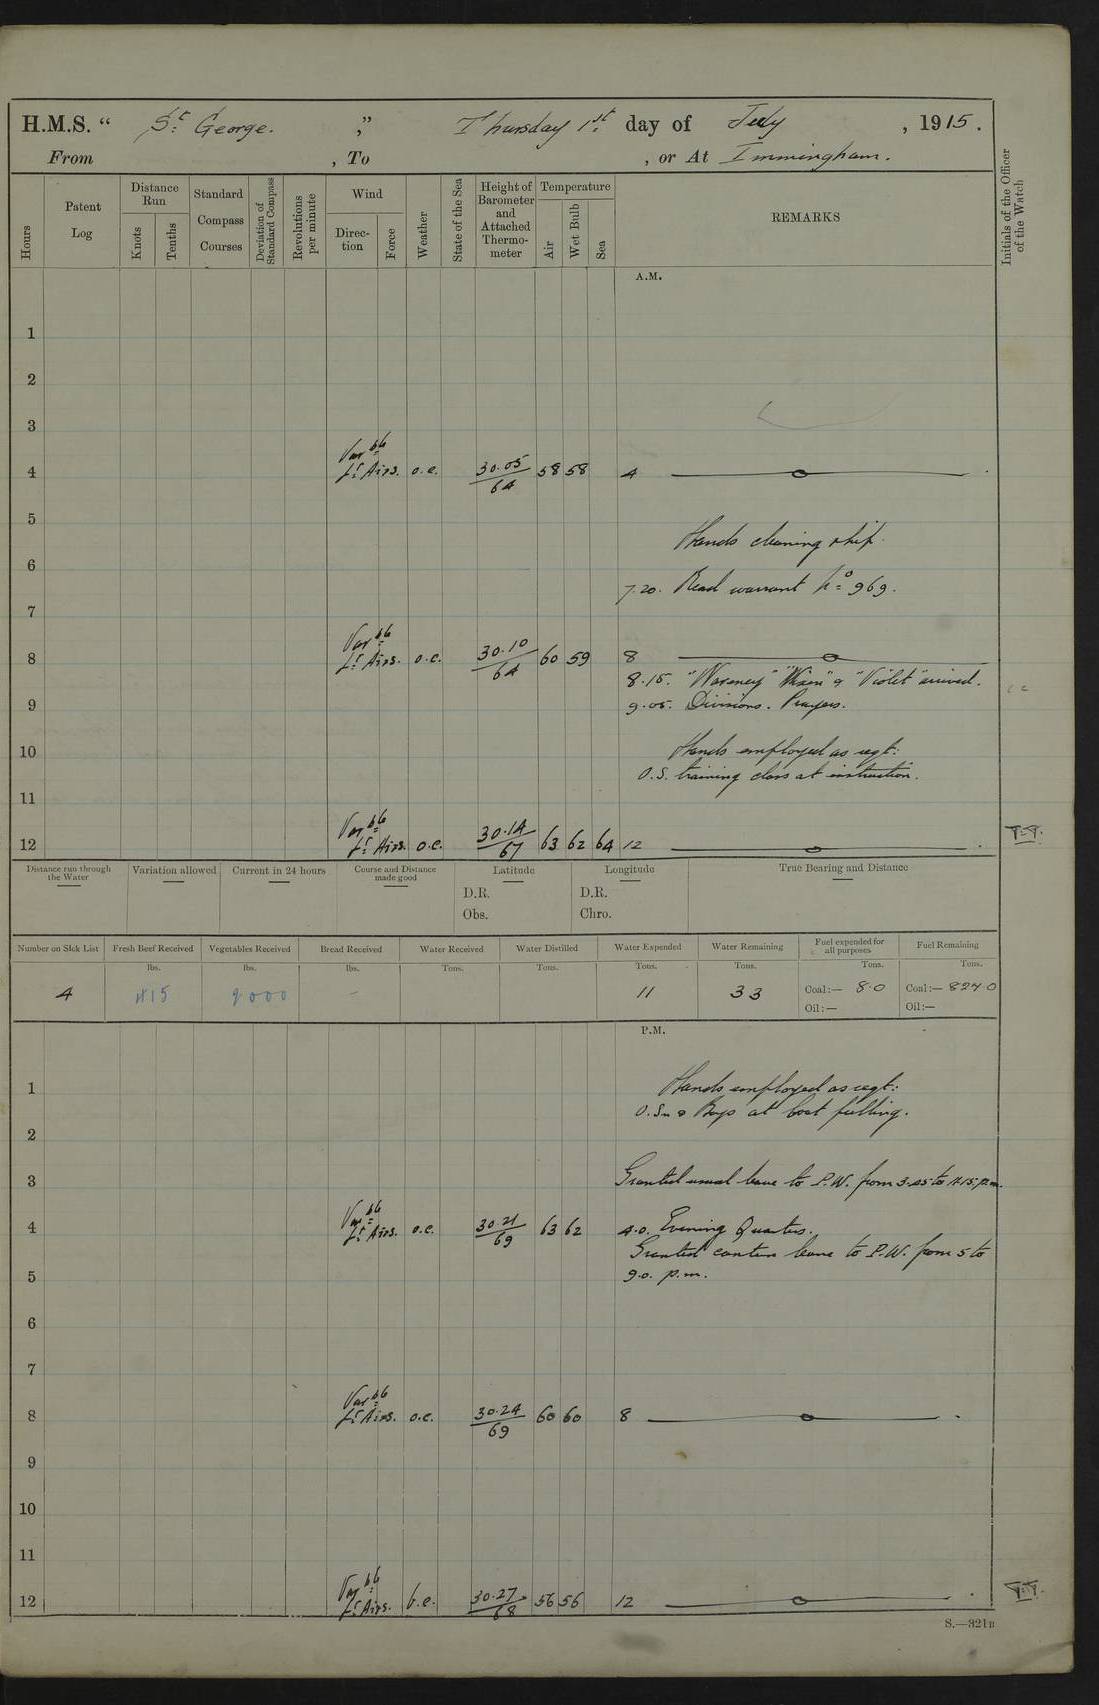 H.M.S. “ St George. ,” Thursday 1st day of July , 1915.
From , To , or At Immingham.
Hours
Patent Log
Distance Run
Knots
Tenths
Standard Compass Courses
Deviation of Standard Compass
Revolutions per minute
Wind
Direction
Force
Weather
State of the Sea
Height of Barometer and Attached Thermometer
Temperature
Air
Wet Bulb
Sea
REMARKS
Initials of the Officer of the Watch
A.M.
1
2
3
Varble
4 Lt Airs. o.c. 30.05/64 58 58 4
5
Hands cleaning ship.
6
7.20. Read warrant No 969.
7
Varble
8 Lt Airs. o.c. 30.10/64 60 59 8
8.15. "Waveney" & "Violet" arrived.
9
9.05. Divisions. Prayers.
10 Hands employed as reqt:
O.S. training class at instruction.
11
Varble
12 Lt Airs. o.c. 30.14/67 63 62 64 12
Distance run through the Water
Variation allowed
Current in 24 hours
Course and Distance made good
Latitude
D.R.
Obs.
Longitude
D.R.
Chro.
True Bearing and Distance
Number on Sick List
Fresh Beef Received
Vegetables Received
Bread Received
Water Received
Water Distilled
Water Expended
Water Remaining
Fuel expended for all purposes
Fuel Remaining
lbs. lbs. lbs. Tons. Tons. Tons. Tons. Tons. Tons.
4 415 2000 - 11 33 Coal:— 8.0 Coal:— 824.0
Oil:— Oil:—
P.M.
1 Hands employed as reqt:
O.Sn & Boys at boat pulling.
2
3 Granted usual leave to P.W. from 3.45 to 11.15 p.m.
Varble
4 Lt Airs. o.c. 30.21/69 63 62 4.0. Evening Quarters.
Granted canteen leave to P.W. from 5 to
5 9.0. p.m.
6
7
Varble
8 Lt Airs. o.c. 30.24/69 60 60 8
9
10
11
Varble
12 Lt Airs. b.c. 30.27/68 56 56 12
S.—321B